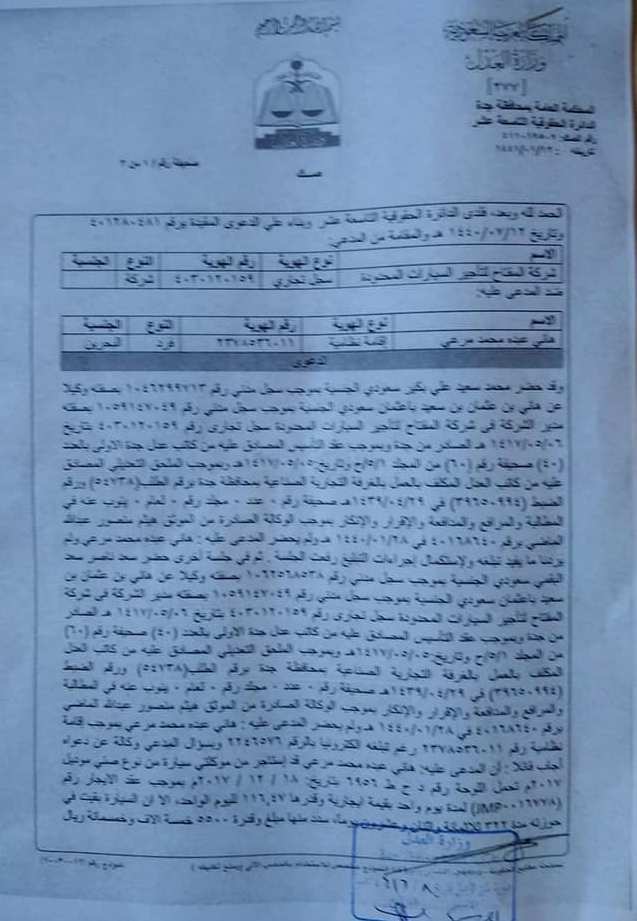 بسم الله الرحمن الرحيم
المملكة العربية السعودية
وزارة العدل
[٢٧٧]
المحكمة العامة بمحافظة جدة
الدائرة الحقوقية التاسعة عشر
رقم الصك:
تاريخه:
صحيفة رقم ١ من ٣
صك
الحمد لله وبعد، فلدى الدائرة الحقوقية التاسعة عشر وبناء على الدعوى المقيدة برقم ٤٠١٢٨٠٤٨١
وتاريخ ١٤٤٠/٠٧/١٢ هـ والمقدمة من المدعي:
الاسم نوع الهوية رقم الهوية النوع الجنسية
شركة المفتاح لتأجير السيارات المحدودة سجل تجاري ٤٠٣٠١٢٠١٥٩ شركة
ضد المدعى عليه:
الاسم نوع الهوية رقم الهوية النوع الجنسية
هاني عبده محمد مرعي إقامة نظامية ٢٣٧٨٥٣٦٠١١ فرد البحرين
الدعوى
وقد حضر محمد سعيد علي بكير سعودي الجنسية بموجب سجل مدني رقم ١٠٤٦٢٩٩٧١٣ بصفته وكيلا
عن هاني بن عثمان بن سعيد باعثمان سعودي الجنسية بموجب سجل مدني رقم ١٠٥٩١٤٧٠٤٩ بصفته
مدير الشركة في شركة المفتاح لتأجير السيارات المحدودة سجل تجاري رقم ٤٠٣٠١٢٠١٥٩ بتاريخ
١٤١٧/٠٥/٠٦ هـ الصادر من جدة وبموجب عقد التأسيس المصادق عليه من كاتب عدل جدة الاولى بالعدد
(٤٠) صحيفة رقم (٦٠) من المجلد ٥/١/ح وتاريخ ١٤١٧/٠٥/٠٥هـ وبموجب الملحق التعديلي المصادق
عليه من كاتب العدل المكلف بالعمل بالغرفة التجارية الصناعية بمحافظة جدة برقم الطلب(٥٤٧٣٨) ورقم
الضبط (٣٩٦٥٠٩٩٤) في ١٤٣٩/٠٤/٢٩هـ صحيفة رقم - عدد - مجلد رقم - لعام - ينوب عنه في
المطالبة والمرافع والمدافعة والإقرار والإنكار بموجب الوكالة الصادرة من الموثق هيثم منصور عبدالله
الماضي برقم ٤٠١٦٨٦٤٠ في ١٤٤٠/٠١/٢٨ هـ ولم يحضر المدعى عليه : هاني عبده محمد مرعي ولم
يردنا ما يفيد تبلغه ولإستكمال إجراءات التبليغ رفعت الجلسة . ثم في جلسة أخرى حضر سعد ناصر سعد
البقمي سعودي الجنسية بموجب سجل مدني رقم ١٠٦٢٥٦٨٥٣٨ بصفته وكيلا عن هاني بن عثمان بن
سعيد باعثمان سعودي الجنسية بموجب سجل مدني رقم ١٠٥٩١٤٧٠٤٩ بصفته مدير الشركة في شركة
المفتاح لتأجير السيارات المحدودة سجل تجاري رقم ٤٠٣٠١٢٠١٥٩ بتاريخ ١٤١٧/٠٥/٠٦ هـ الصادر
من جدة وبموجب عقد التأسيس المصادق عليه من كاتب عدل جدة الاولى بالعدد (٤٠) صحيفة رقم (٦٠)
من المجلد ٥/١/ح وتاريخ ١٤١٧/٠٥/٠٥هـ وبموجب الملحق التعديلي المصادق عليه من كاتب العدل
المكلف بالعمل بالغرفة التجارية الصناعية بمحافظة جدة برقم الطلب(٥٤٧٣٨) ورقم الضبط
(٣٩٦٥٠٩٩٤) في ١٤٣٩/٠٤/٢٩هـ صحيفة رقم - عدد - مجلد رقم - لعام - ينوب عنه في المطالبة
والمرافع والمدافعة والإقرار والإنكار بموجب الوكالة الصادرة من الموثق هيثم منصور عبدالله الماضي
برقم ٤٠١٦٨٦٤٠ في ١٤٤٠/٠١/٢٨ هـ ولم يحضر المدعى عليه : هاني عبده محمد مرعي بموجب إقامة
نظامية رقم ٢٣٧٨٥٣٦٠١١ رغم تبلغه الكترونيا بالرقم ٢٢٤٦٥٧٦ وبسؤال المدعي وكالة عن دعواه
أجاب قائلا : أن المدعى عليه: هاني عبده محمد مرعي قد إستأجر من موكلتي سيارة من نوع صني موديل
٢٠١٧م تحمل اللوحة رقم د ح ط ٦٩٥٦ بتاريخ: ١٨ / ١٢ / ٢٠١٧م بموجب عقد الايجار رقم
(JMP٠٠١٦٧٧٨) لمدة يوم واحد بقيمة ايجارية وقدرها ١١٦,٤٧ لليوم الواحد، الا ان السيارة بقيت في
حوزته مدة ٣٢٢ يوما، سدد منها مبلغ وقدرة ٥٥٠٠ خمسة الاف وخمسمائة ريال
وزارة العدل